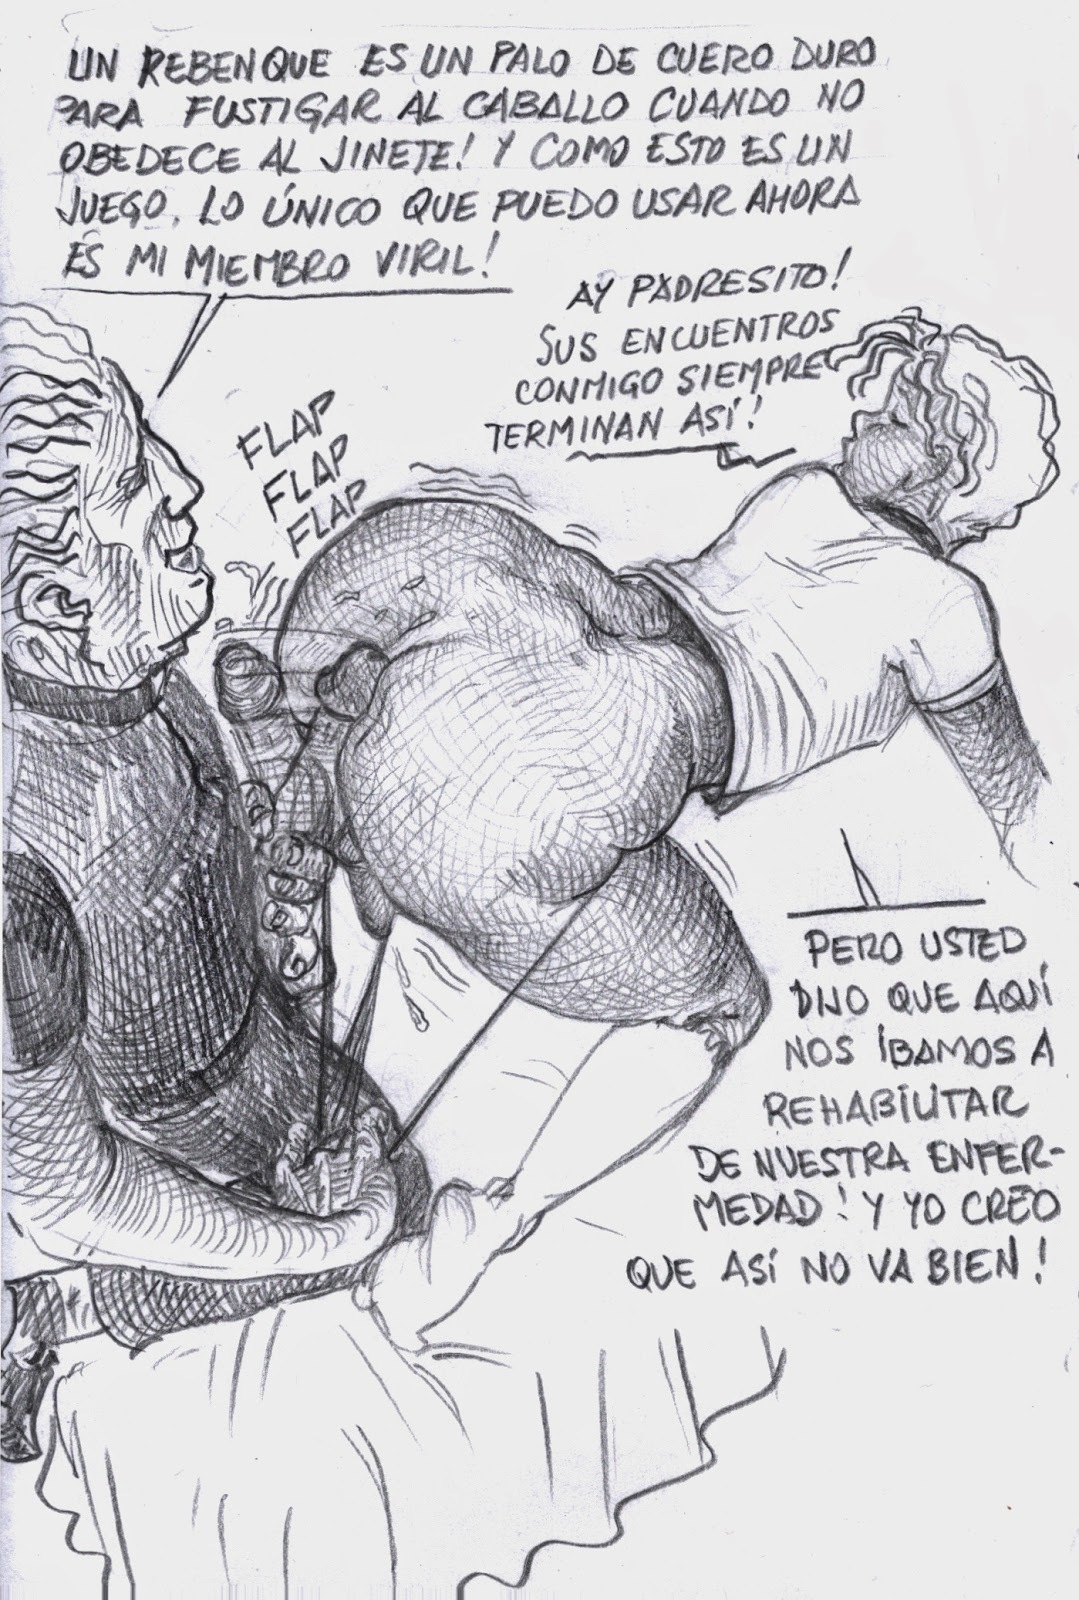 UN REBENQUE ES UN PALO DE CUERO DURO
PARA FUSTIGAR AL CABALLO CUANDO NO
OBEDECE AL JINETE! Y COMO ESTO ES UN
JUEGO, LO ÚNICO QUE PUEDO USAR AHORA
ES MI MIEMBRO VIRIL!
AY PADRESITO!
SUS ENCUENTROS
CONMIGO SIEMPRE
TERMINAN ASÍ!
FLAP
FLAP
FLAP
PERO USTED
DIJO QUE AQUÍ
NOS ÍBAMOS A
REHABILITAR
DE NUESTRA ENFER-
MEDAD! Y YO CREO
QUE ASÍ NO VA BIEN!